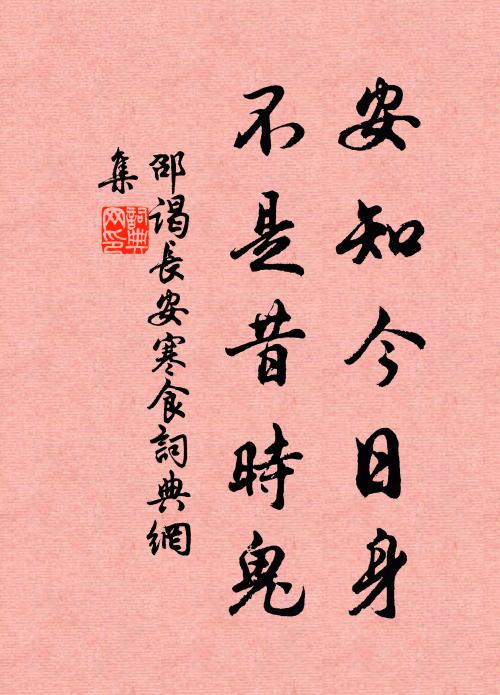 安知今日身
不是昔時鬼
邵謁長安寒食詞典網
集
詞典
网印